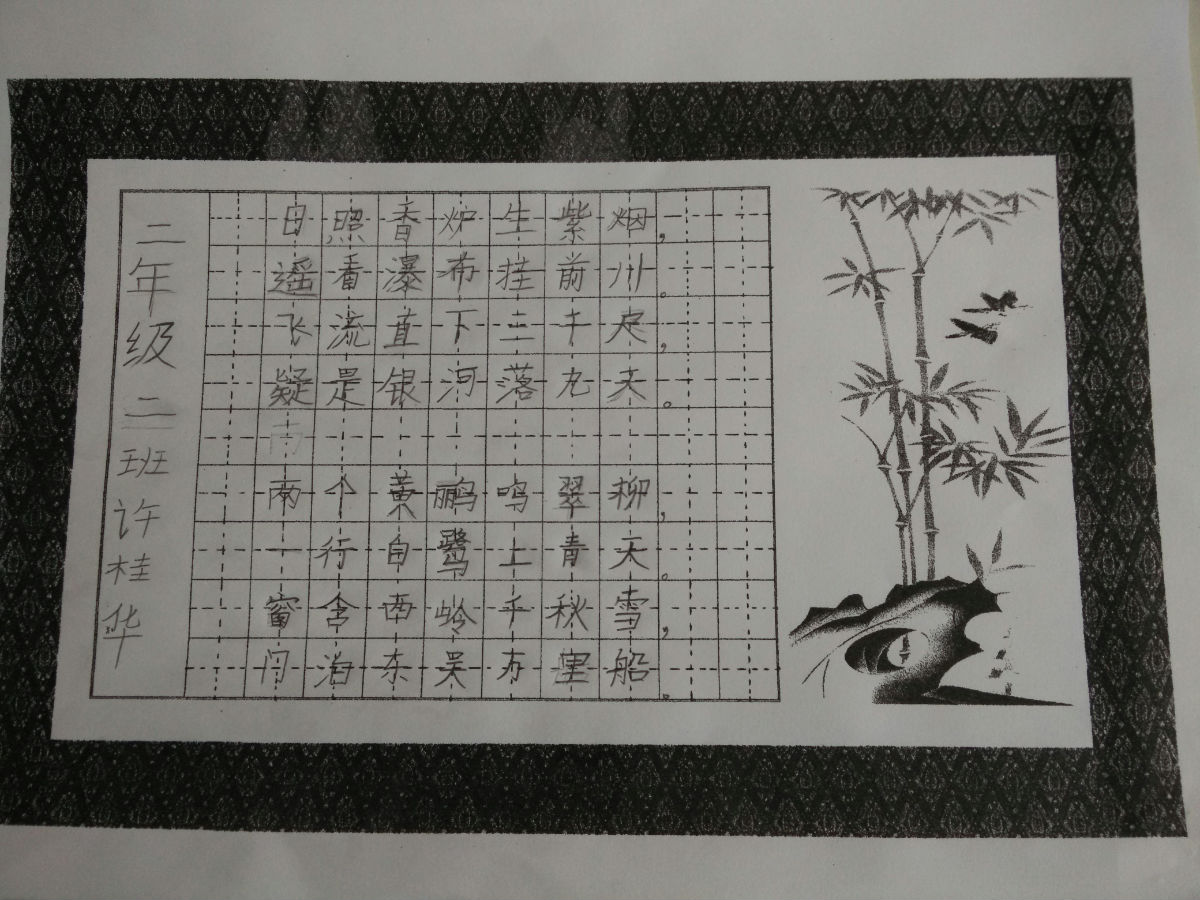 二年级二班许桂华
日照香炉生紫烟，
遥看瀑布挂前川。
飞流直下三千尺，
疑是银河落九天。
南
两个黄鹂鸣翠柳，
一行白鹭上青天。
窗含西岭千秋雪，
门泊东吴万里船。